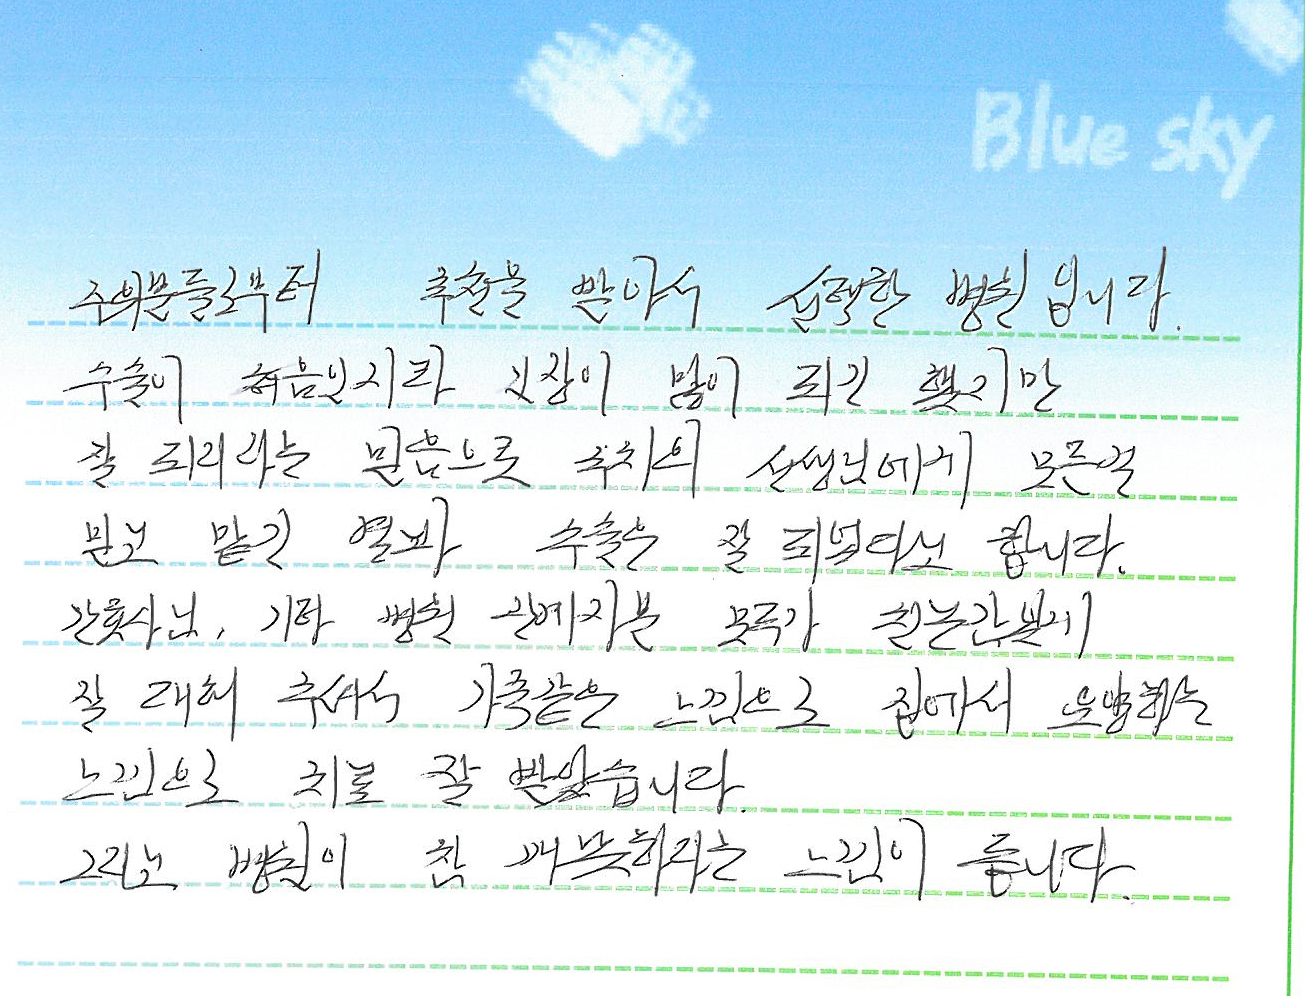 Blue sky
주위분들로부터 추천을 받아서 선택한 병원입니다.
수술이 처음인지라 긴장이 많이 되긴 했지만
잘 되리라는 믿음으로 주치의 선생님에게 모든걸
믿고 맡긴 결과 수술은 잘 되었다고 합니다.
간호사님, 기타 병원 관계자분 모두가 친절하게
잘 대해 주셔서 가족같은 느낌으로 집에서 요양하는
느낌으로 치료 잘 받았습니다.
그리고 병원이 참 깨끗하다는 느낌이 듭니다.